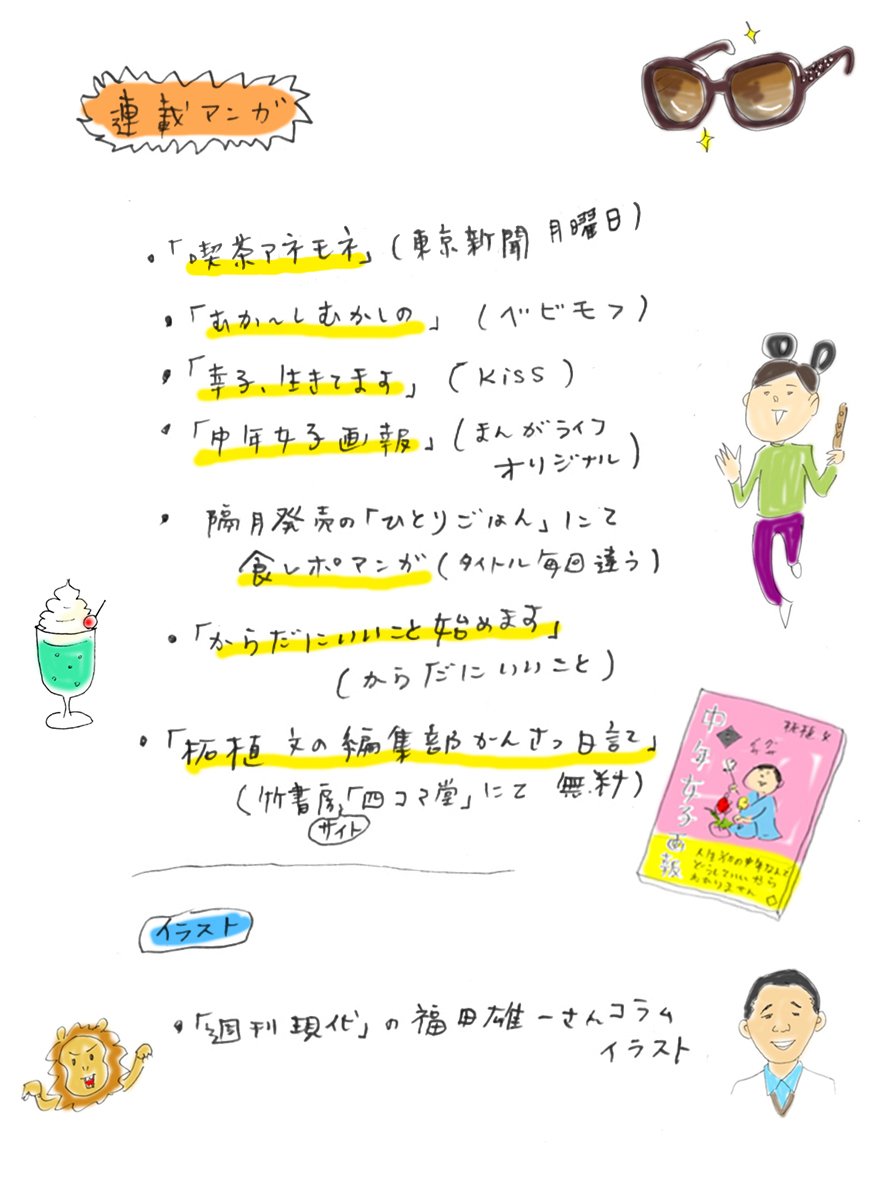 連載マンガ
・「喫茶アネモネ」(東京新聞 月曜日)
・「むか〜しむかしの」(ベビモフ)
・「幸子、生きてます」(Kiss)
・「中年女子画報」(まんがライフ
オリジナル)
・隔月発売の「ひとりごはん」にて
食レポマンガ(タイトル毎回違う)
・「からだにいいこと始めます」
(からだにいいこと)
・「柘植文の編集部かんさつ日記」
(竹書房「四コマ堂」にて 無料)
サイト
柘植文
中年女子画報
どうしていいやら
わかりません
イラスト
・「週刊現代」の福田雄一さんコラム
イラスト